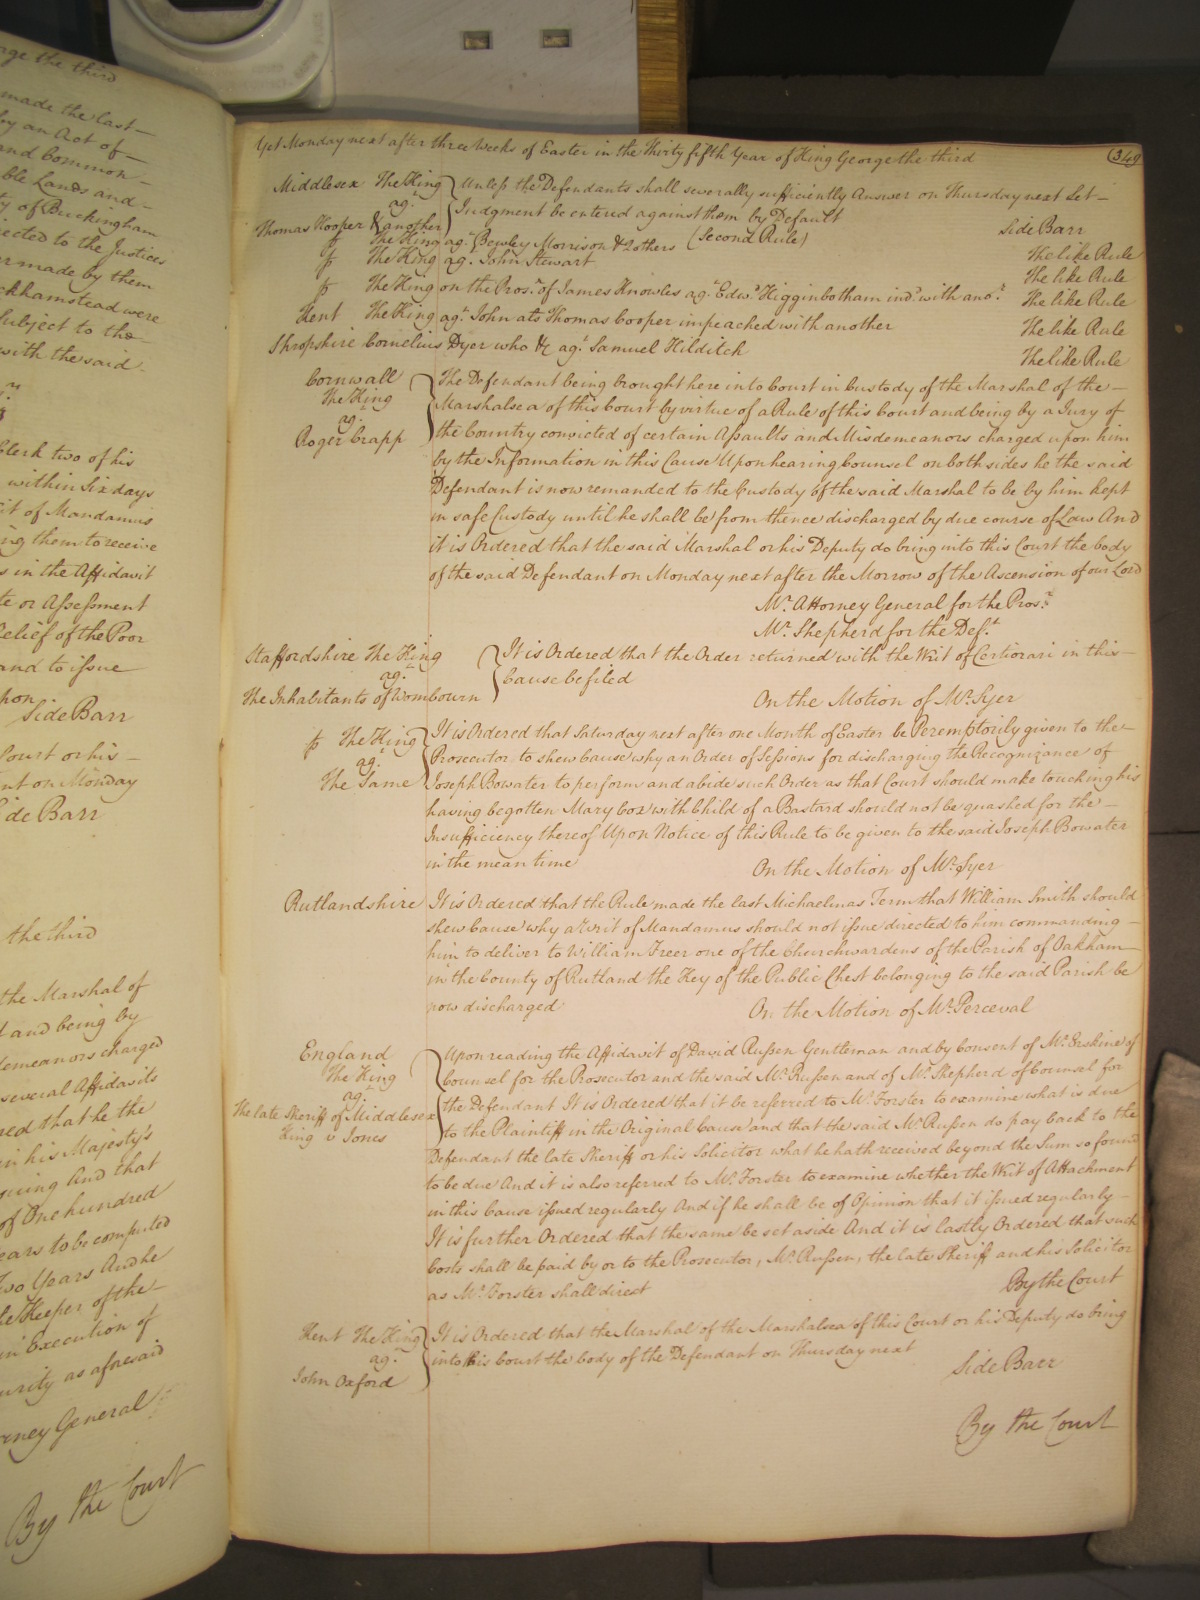 rge the third
made the last —
by an Act of —
and Common —
ble Lands and —
ty of Buckingham
jected to the Justices
r made by them
ckhamstead were
Subject to the
with the said
Clerk two of his
within Six days
it of Mandamus
ing them to receive
s in the Affidavit
te or Assessment
Relief of the Poor
and to issue
pon
Side Barr
Court or his —
nt on Monday
Side Barr
the third
the Marshal of
t and being by
demeanors charged
several Affidavits
red that he the
in his Majesty's
And that
of One hundred
ears to be computed
Two Years And he
the Keeper of the —
in Execution of
urity as aforesaid
rney General
By the Court
Yet Monday next after three Weeks of Easter in the Thirty fifth Year of King George the third
349
Middlesex The King Unless the Defendants shall severally sufficiently Answer on Thursday next let —
agt. Judgment be entered against them by Default
Thomas Hooper & another (Second Rule) Side Barr
The King agt. Bewley Morrison & 2 others The like Rule
The King agt. John Stewart The like Rule
The King on the Prosn. of James Knowles agt. Edwd. Higginbotham indd. with anor. The like Rule
Kent The King agt. John ats Thomas Cooper impeached with another The like Rule
Shropshire Cornelius Dyer who &c agt. Samuel Hilditch The like Rule
Cornwall The Defendant being brought here into Court in Custody of the Marshal of the —
The King Marshalsea of this Court by virtue of a Rule of this Court and being by a Jury of
agt.
Roger Crapp the Country convicted of certain Assaults and Misdemeanors charged upon him
by the Information in this Cause Upon hearing Counsel on both sides he the said
Defendant is now remanded to the Custody of the said Marshal to be by him kept
in safe Custody until he shall be from thence discharged by due course of Law And
it is Ordered that the said Marshal or his Deputy do bring into this Court the body
of the said Defendant on Monday next after the Morrow of the Ascension of our Lord
Mr. Attorney General for the Prosr.
Mr. Shepherd for the Deft.
Staffordshire The King It is Ordered that the Order returned with the Writ of Certiorari in this —
agt. Cause be filed
The Inhabitants of Wombourn On the Motion of Mr. Dyer
The King It is Ordered that Saturday next after one Month of Easter be Peremptorily given to the —
agt. Prosecutor to shew Cause why an Order of Sessions for discharging the Recognizance of
The Same Joseph Bowater to perform and abide such Order as that Court should make touching his
having begotten Mary Cox with Child of a Bastard should not be quashed for the —
Insufficiency thereof Upon Notice of this Rule to be given to the said Joseph Bowater
in the mean time On the Motion of Mr. Dyer
Rutlandshire It is Ordered that the Rule made the last Michaelmas Term that William Smith should
shew Cause why a Writ of Mandamus should not issue directed to him commanding —
him to deliver to William Freer one of the Churchwardens of the Parish of Oakham —
in the County of Rutland the Key of the Public Chest belonging to the said Parish be
now discharged On the Motion of Mr. Perceval
England Upon reading the Affidavit of David Russen Gentleman and by Consent of Mr. Erskine of
The King Counsel for the Prosecutor and the said Mr. Russen and of Mr. Shepherd of Counsel for
agt. the Defendant It is Ordered that it be referred to Mr. Forster to examine what is due
The late Sheriff of Middlesex to the Plaintiff in the Original Cause and that the said Mr. Russen do pay back to the
King v Jones Defendant the late Sheriff or his Solicitor what he hath received beyond the Sum so found
to be due And it is also referred to Mr. Forster to examine whether the Writ of Attachment
in this Cause issued regularly And if he shall be of Opinion that it issued regularly —
It is further Ordered that the same be set aside And it is lastly Ordered that such
Costs shall be paid by or to the Prosecutor, Mr. Russen, the late Sheriff and his Solicitor
as Mr. Forster shall direct By the Court
Kent The King It is Ordered that the Marshal of the Marshalsea of this Court or his Deputy do bring
agt. into this Court the body of the Defendant on Thursday next
John Oxford Side Barr
By the Court